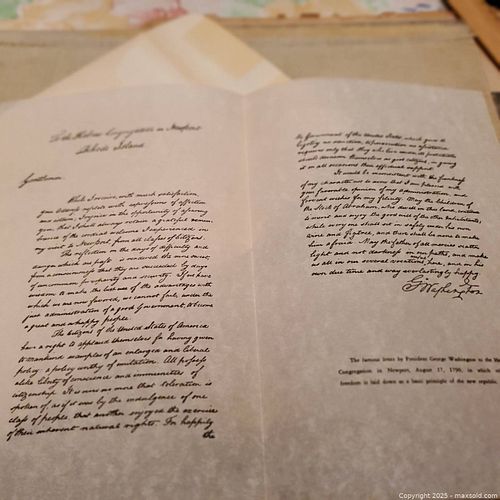 To the Hebrew Congregation in Newport
Rhode Island
Gentlemen.
While I receive, with much satisfaction,
your Address replete with expressions of affection
and esteem; I rejoice in the opportunity of assuring
you, that I shall always retain a grateful remem-
brance of the cordial welcome I experienced in
my visit to Newport, from all classes of Citizens.
The reflection on the days of difficulty and
danger which are past is rendered the more sweet,
from a consciousness that they are succeeded by days
of uncommon prosperity and security. If we have
wisdom to make the best use of the advantages with
which we are now favored, we cannot fail, under the
just administration of a good Government, to become
a great and a happy people.
The Citizens of the United States of America
have a right to applaud themselves for having given
to mankind examples of an enlarged and liberal
policy: a policy worthy of imitation. All possess
alike liberty of conscience and immunities of
citizenship. It is now no more that toleration is
spoken of, as if it was by the indulgence of one
class of people, that another enjoyed the exercise
of their inherent natural rights. For happily
the
the Government of the United States, which gives to
bigotry no sanction, to persecution no assistance
requires only that they who live under its protection
should demean themselves as good citizens, in giving
it on all occasions their effectual support.
It would be inconsistent with the frankness
of my character not to avow that I am pleased with
your favorable opinion of my Administration, and
fervent wishes for my felicity. May the Children of
the Stock of Abraham, who dwell in this land, continue
to merit and enjoy the good will of the other Inhabitants;
while every one shall sit in safety under his own
vine and figtree, and there shall be none to make
him afraid. May the father of all mercies scatter
light and not darkness in our paths, and make
us all in our several vocations useful here, and in his
own due time and way everlastingly happy.
G. Washington
The famous letter by President George Washington to the
Congregation in Newport, August 17, 1790, in which
freedom is laid down as a basic principle of the new republic.
Copyright 2025 - maxsold.com